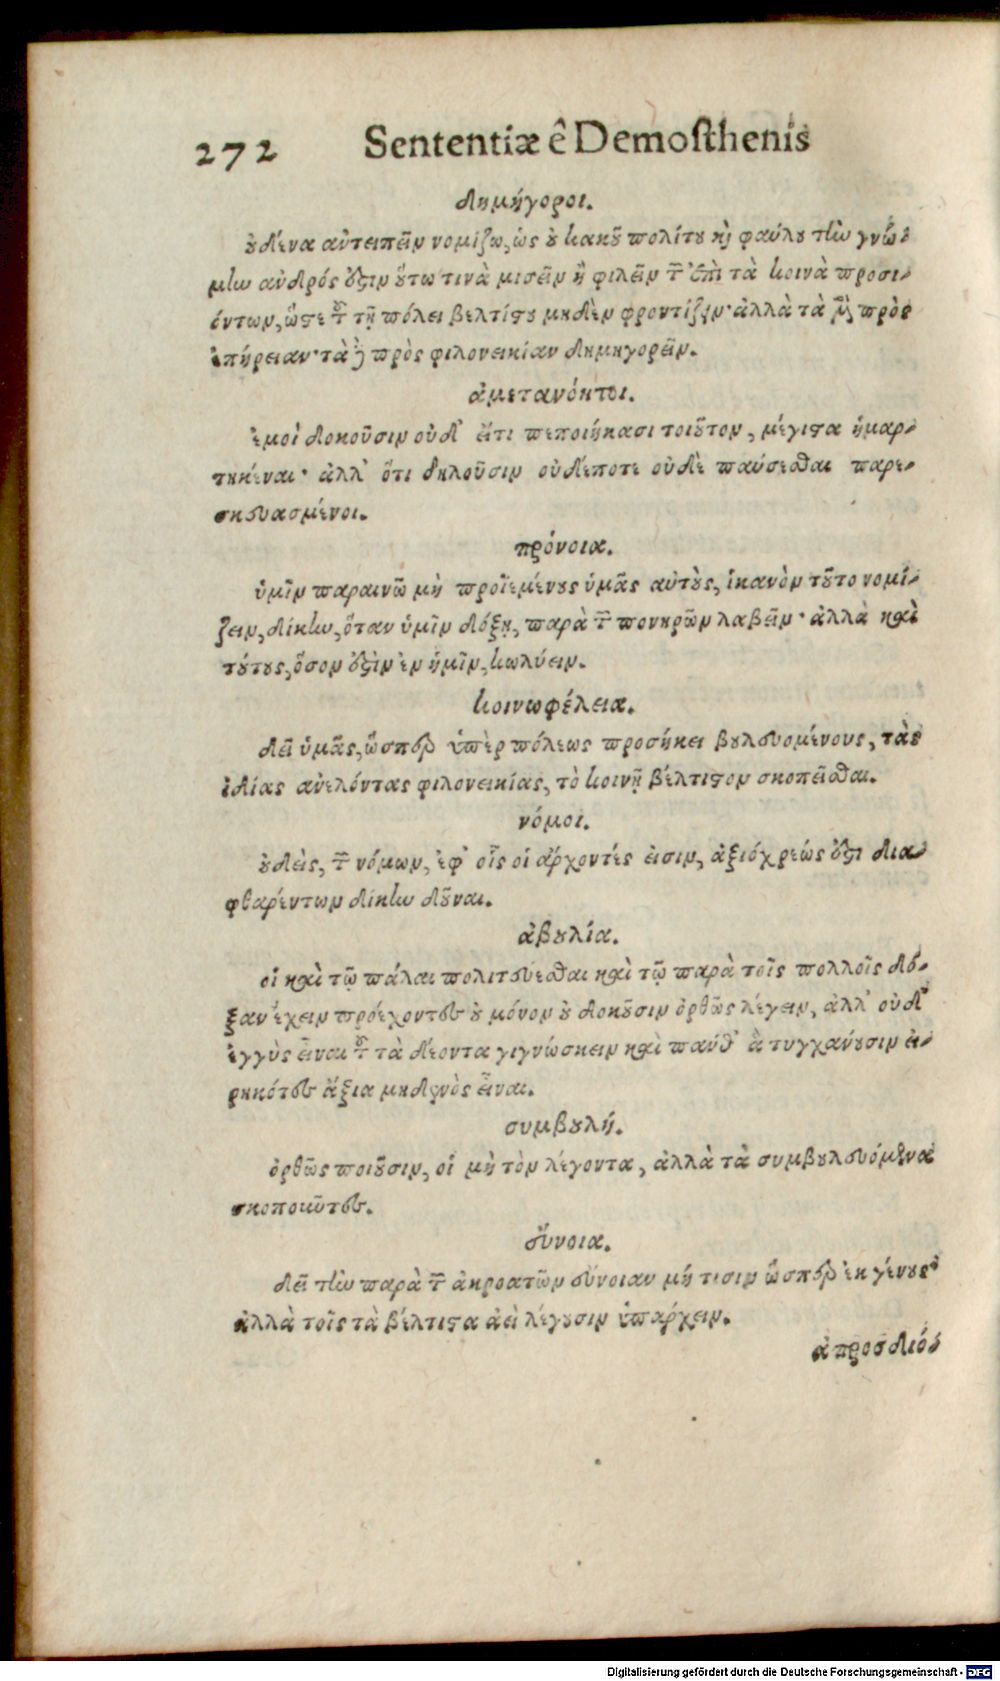 272 Sententiæ ê Demosthenis
δημήγοροι.
οὐδένα ἀντειπεῖν νομίζω, ὡς οὐ κακοῦ πολίτου καὶ φαύλου τὴν γνώ-
μην ἀνδρός ἐστιν οὕτω τινὰ μισεῖν ἢ φιλεῖν τῶν ἐπὶ τὰ κοινὰ προσι-
όντων, ὥστε τοῦ τῇ πόλει βελτίστου μηδὲν φροντίζειν· ἀλλὰ τὰ μὲν πρὸς
ἐπήρειαν· τὰ δὲ πρὸς φιλονεικίαν δημηγορεῖν.
ἀμετανόητοι.
ἐμοὶ δοκοῦσιν οὐδ' εἴ τι πεποιήκασι τοιοῦτον, μέγιστα ἡμαρ-
τηκέναι· ἀλλ' ὅτι δηλοῦσιν οὐδέποτε οὐδὲ παύσεσθαι παρε-
σκευασμένοι.
πρόνοια.
ὑμῖν παραινῶ μὴ προϊεμένους ὑμᾶς αὐτοὺς, ἱκανὸν τοῦτο νομί-
ζειν, δίκην, ὅταν ὑμῖν δόξῃ, παρὰ τῶν πονηρῶν λαβεῖν· ἀλλὰ καὶ
τούτους, ὅσον ἐστὶν ἐν ἡμῖν, κωλύειν.
κοινωφέλεια.
δεῖ ὑμᾶς, ὥσπερ ὑπὲρ πόλεως προσήκει βουλευομένους, τὰς
ἰδίας ἀνελόντας φιλονεικίας, τὸ κοινῇ βέλτιστον σκοπεῖσθαι.
νόμοι.
οὐδεὶς, τῶν νόμων, ἐφ' οἷς οἱ ἄρχοντές εἰσιν, ἀξιόχρεώς ἐστι δια-
φθαρέντων δίκην δοῦναι.
ἀβουλία.
οἱ καὶ τῷ πάλαι πολιτεύεσθαι καὶ τῷ παρὰ τοῖς πολλοῖς δό-
ξαν ἔχειν προέχοντες οὐ μόνον οὐ δοκοῦσιν ὀρθῶς λέγειν, ἀλλ' οὐδ'
ἐγγὺς εἶναι τοῦ τὰ δέοντα γιγνώσκειν καὶ πάνθ' ἃ τυγχάνουσιν εἰ-
ρηκότες ἄξια μηδενὸς εἶναι.
συμβουλή.
ὀρθῶς ποιοῦσιν, οἱ μὴ τὸν λέγοντα, ἀλλὰ τὰ συμβουλευόμενα
σκοποῦντες.
εὔνοια.
δεῖ τὴν παρὰ τῶν ἀκροατῶν εὔνοιαν μή τισιν ὥσπερ ἐκ γένους·
ἀλλὰ τοῖς τὰ βέλτιστα ἀεὶ λέγουσιν ὑπάρχειν.
ἀπροσδιό-
Digitalisierung gefördert durch die Deutsche Forschungsgemeinschaft - DFG